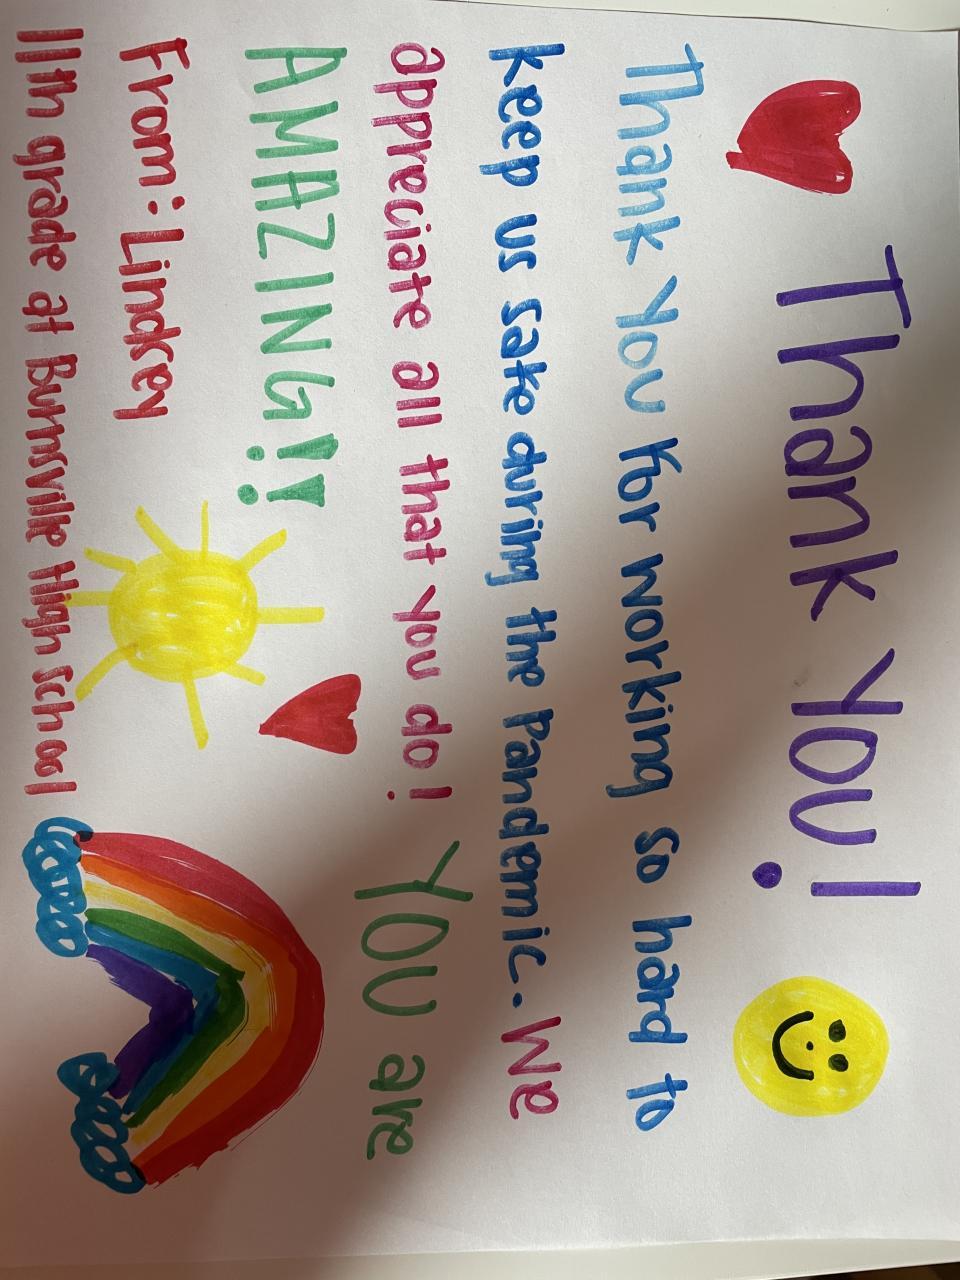 Thank You!
Thank You for working so hard to
keep us safe during the Pandemic. We
appreciate all that you do! You are
AMAZING!!
From: Lindsey
11th grade at Burnsville High School